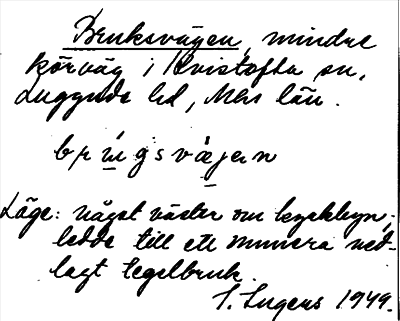 Bruksvägen, mindre
körväg i Kvistofta sn,
Luggude hd, Mhs län.
brúgsvæjen
Läge: något väster om kyrkbyn,
ledde till ett numera ned-
lagt tegelbruk.
S. Ingers 1949.